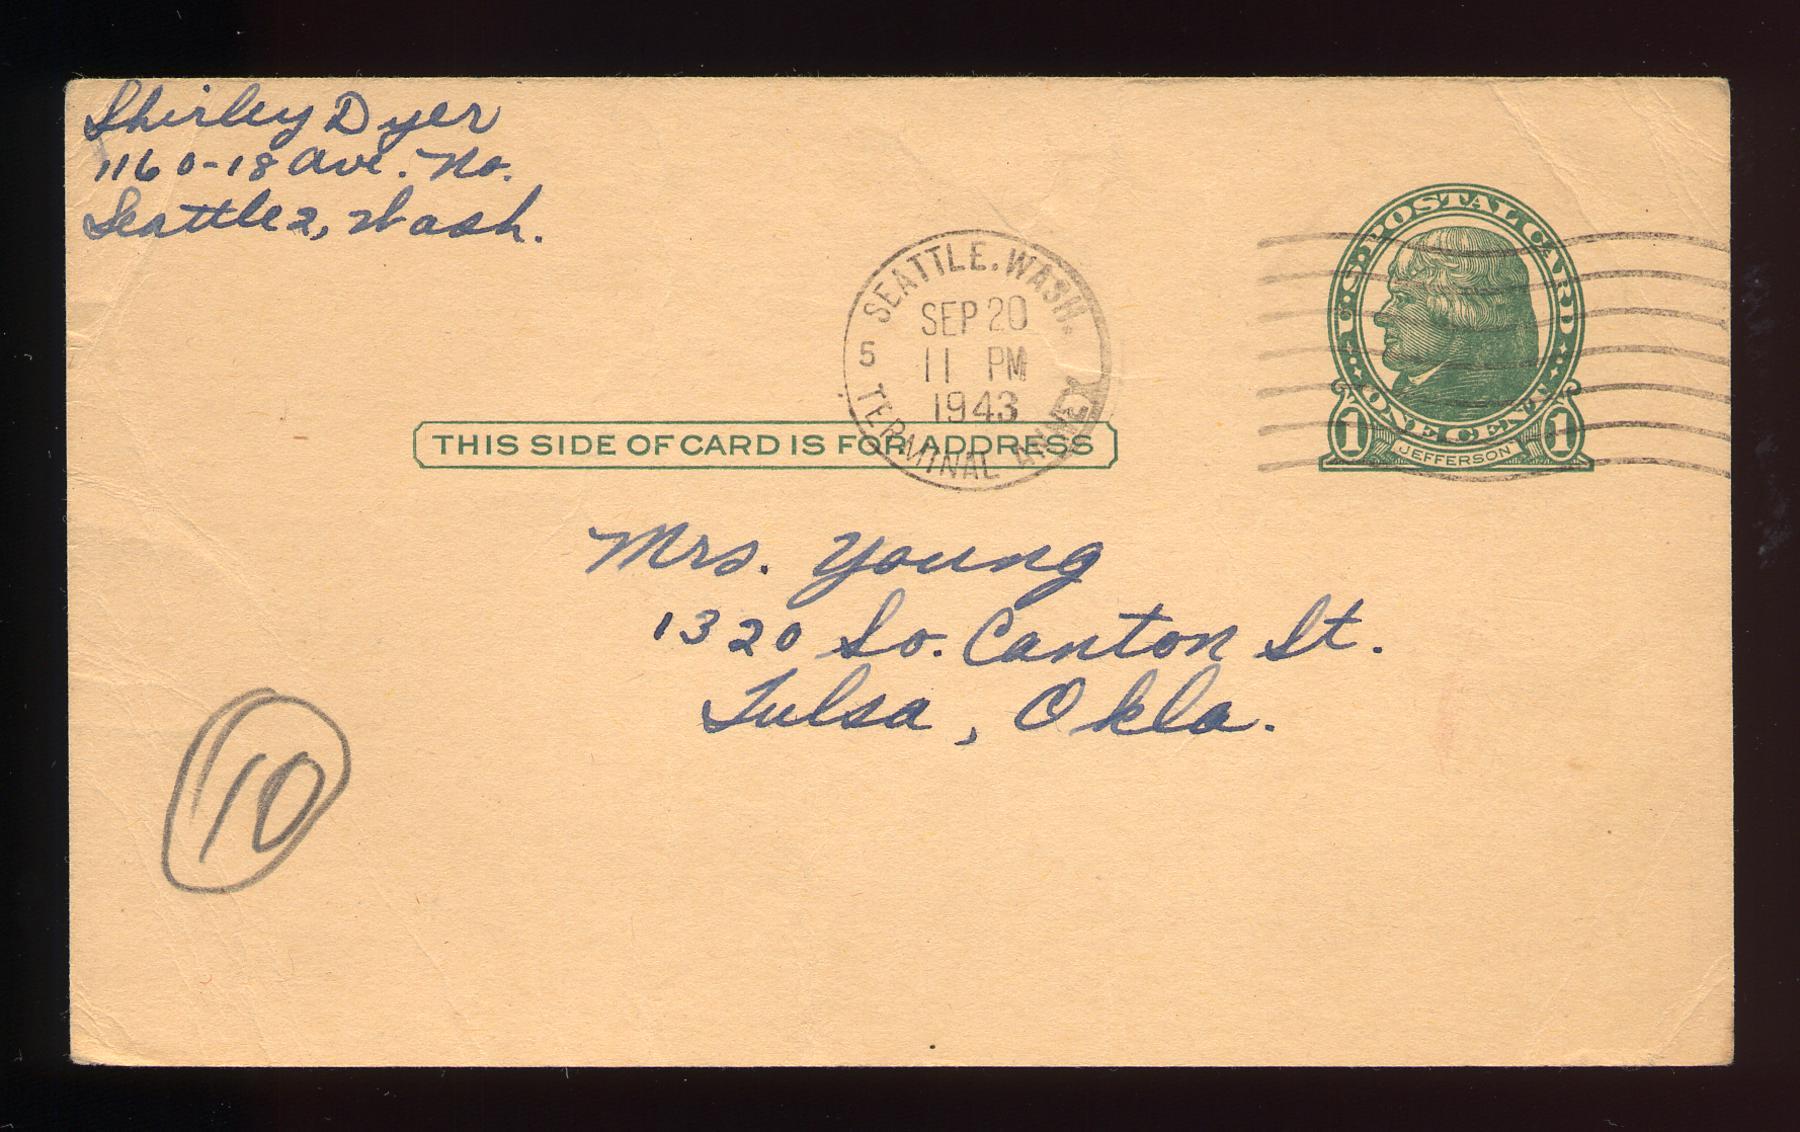 Shirley Dyer
1160-18 Ave. No.
Seattle 2, Wash.
SEATTLE, WASH.
SEP 20
11 PM
1943
5
TERMINAL ANNEX
U.S. POSTAL CARD
ONE CENT
1 JEFFERSON 1
THIS SIDE OF CARD IS FOR ADDRESS
Mrs. Young
1320 So. Canton St.
Tulsa, Okla.
10